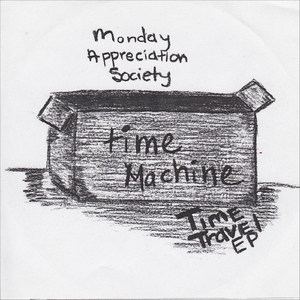 Monday
Appreciation
Society
time
Machine
TIME
TRAVEL
EP